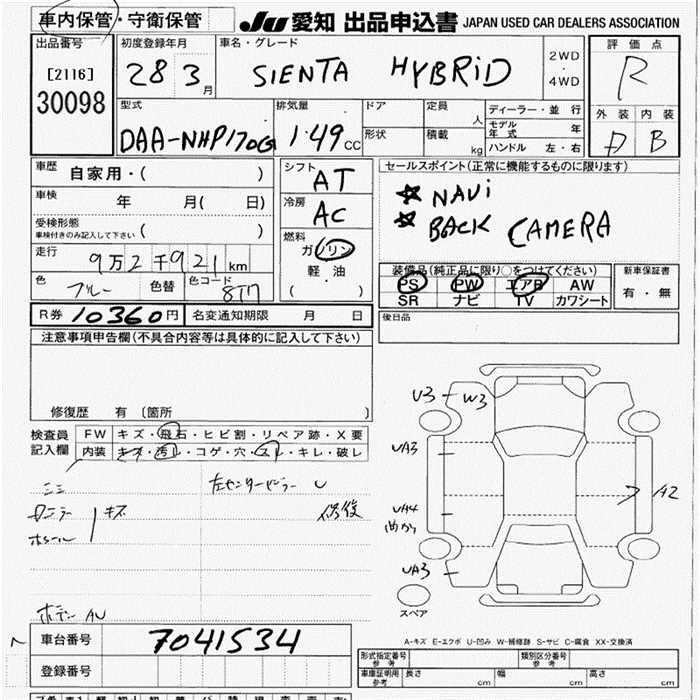 車内保管・守衛保管
JU 愛知 出品申込書 JAPAN USED CAR DEALERS ASSOCIATION
出品番号
[2116]
30098
初度登録年月
28 3月
車名・グレード
SIENTA HYBRID
2WD
・
4WD
評価点
R
外装 内装
D B
型式
DAA-NHP170G
排気量
1.49 CC
ドア
形状
定員 人
積載 kg
ディーラー・並行
モデル年式 年
ハンドル 左・右
車歴 自家用・( )
車検 年 月( 日)
受検形態
車検付きのみ記入して下さい ( )
走行 9万2千921km
色 ブルー 色替 色コード 8T7
シフト AT
冷房 AC
燃料
ガソリン
軽・油
( )
セールスポイント(正常に機能するものに限ります)
☆ NAVi
☆ BACK CAMERA
装備品(純正品に限り○をつけてください)
PS PW エアB AW
SR ナビ TV カワシート
新車保証書
有・無
R券 10360円 名変通知期限 月 日
後日品
注意事項申告欄(不具合内容等は具体的に記入して下さい)
修復歴 有 〔箇所 〕
検査員記入欄
FW キズ・飛石・ヒビ割・リペア跡・X要
内装 キズ・汚レ・コゲ・穴・スレ・キレ・破レ
キズ
左センターピラー U
修復
ボデー AU
U3 W3
UA3
UA4
曲がり
UA3
A2
スペア
A-キズ E-エクボ U-凹み W-補修跡 S-サビ C-腐食 XX-交換済
車台番号 7041534
登録番号
型式指定番号
参考
類別区分番号
参考
車庫証明用
参考
長さ cm 幅 cm 高さ cm